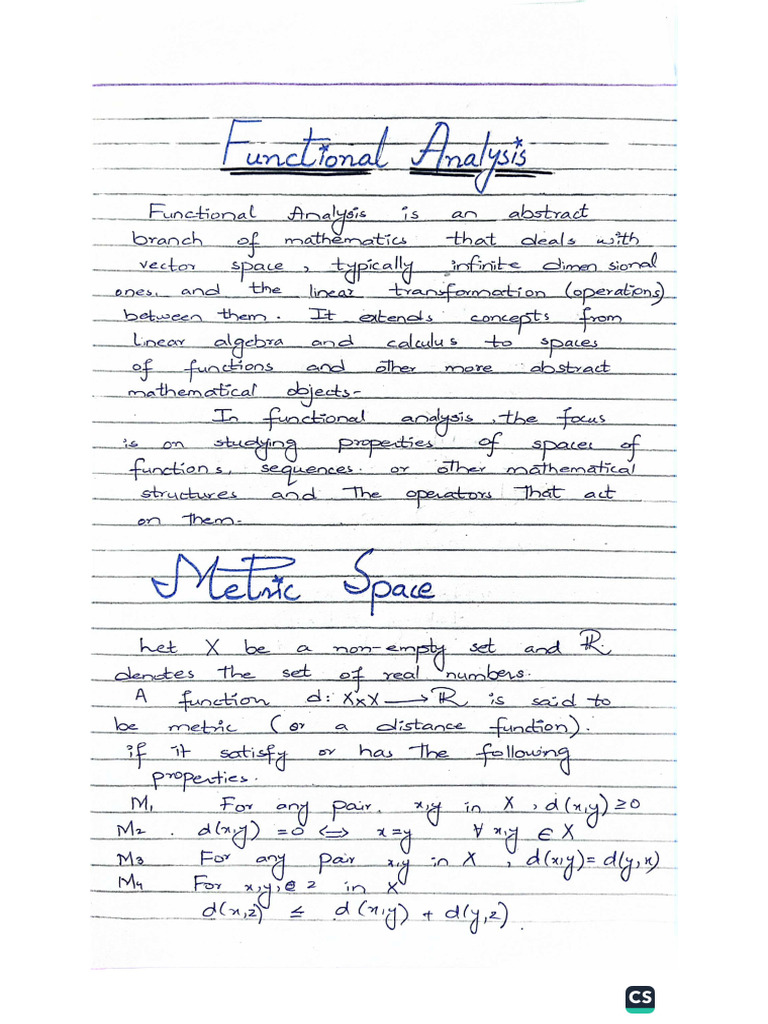 Functional Analysis
Functional Analysis is an abstract
branch of mathematics that deals with
vector space, typically infinite dimensional
ones, and the linear transformation (operations)
between them. It extends concepts from
linear algebra and calculus to spaces
of functions and other more abstract
mathematical objects-
In functional analysis, the focus
is on studying properties of spaces of
functions, sequences. or other mathematical
structures and The operators That act
on Them-
Metric Space
Let X be a non-empty set and ℝ
denotes The set of real numbers.
A function d: X×X → ℝ is said to
be metric (or a distance function).
if it satisfy or has The following
properties.
M1 For any pair. x,y in X, d(x,y) ≥ 0
M2. d(x,y) = 0 ⇔ x = y ∀ x,y ∈ X
M3 For any pair x,y in X, d(x,y) = d(y,x)
M4 For x,y, z in X
d(x,z) ≤ d(x,y) + d(y,z).
CS